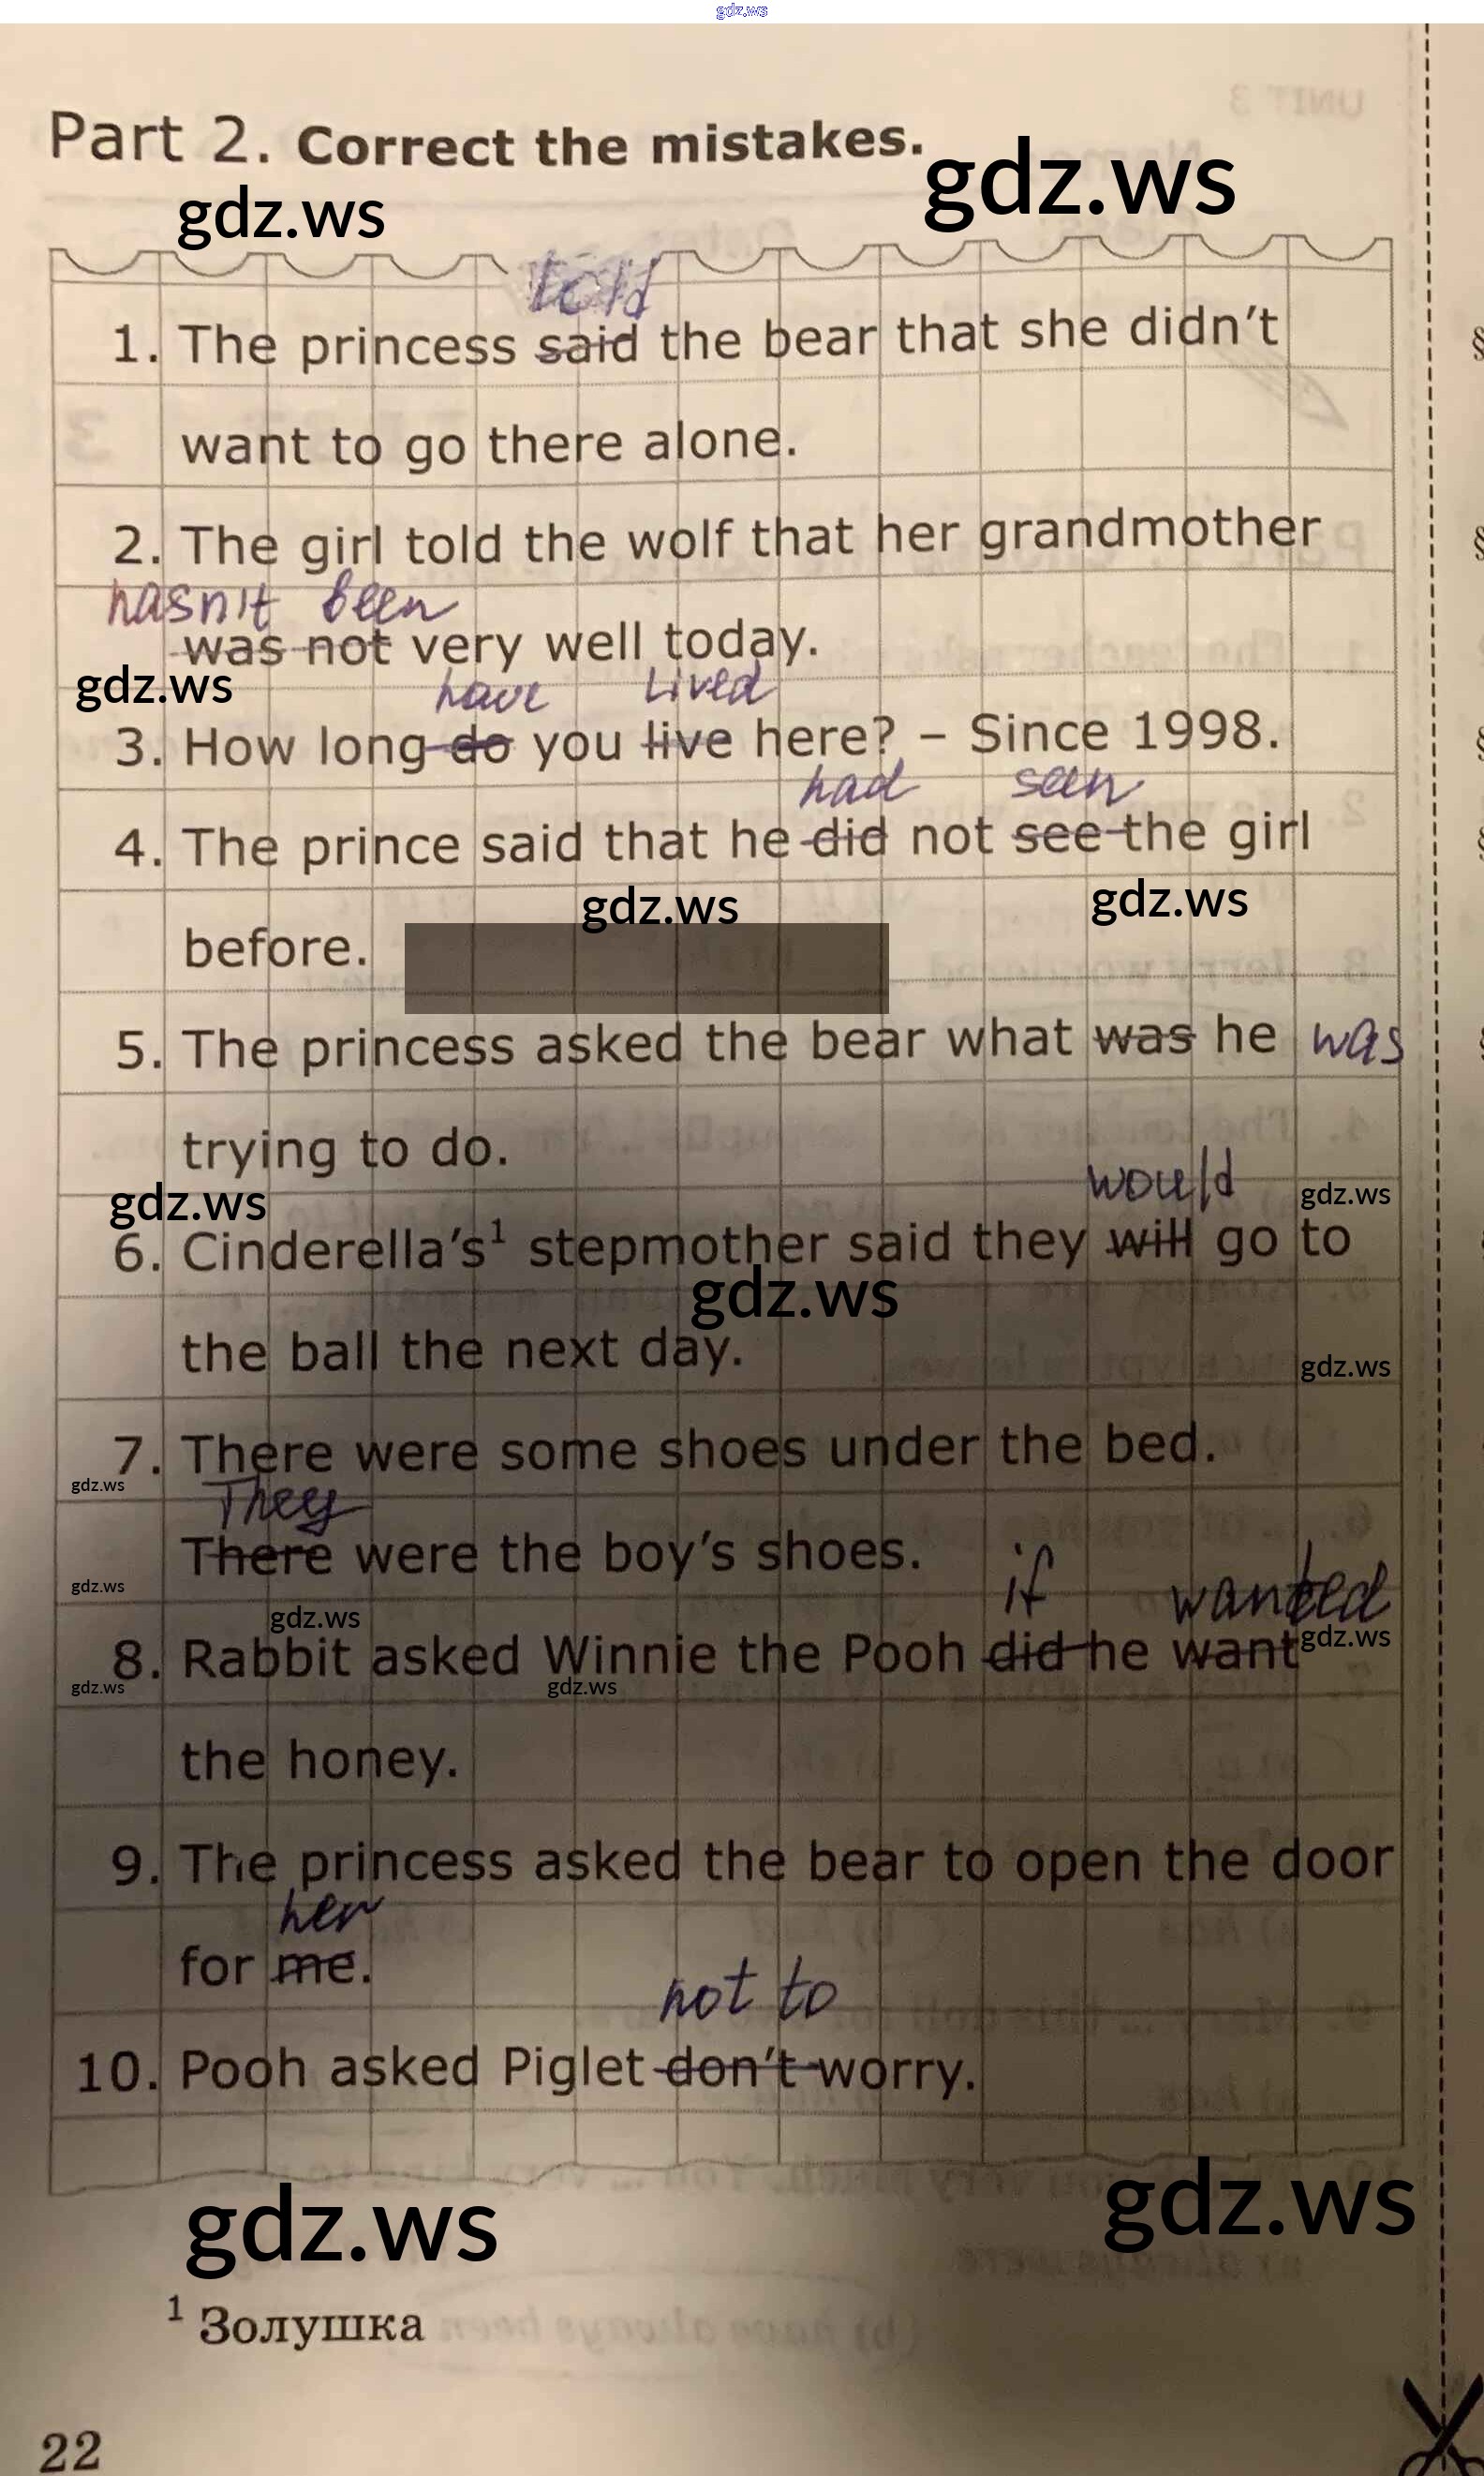 gdz.ws
Part 2. Correct the mistakes.
gdz.ws
gdz.ws
told
1. The princess said the bear that she didn't
want to go there alone.
2. The girl told the wolf that her grandmother
hasn't been
was not very well today.
gdz.ws
have lived
3. How long do you live here? – Since 1998.
had seen
4. The prince said that he did not see the girl
gdz.ws gdz.ws
before.
5. The princess asked the bear what was he was
trying to do.
would
gdz.ws gdz.ws
6. Cinderella's¹ stepmother said they will go to
gdz.ws
the ball the next day.
gdz.ws
7. There were some shoes under the bed.
gdz.ws
They
There were the boy's shoes.
gdz.ws
if wanted
gdz.ws
8. Rabbit asked Winnie the Pooh did he want
gdz.ws
gdz.ws gdz.ws
the honey.
9. The princess asked the bear to open the door
her
for me.
not to
10. Pooh asked Piglet don't worry.
gdz.ws gdz.ws
¹ Золушка
22